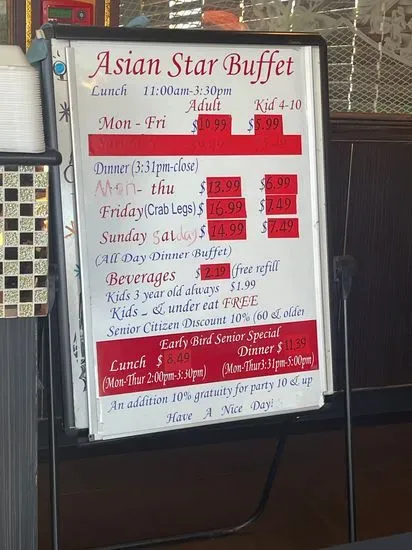 Asian Star Buffet
Lunch 11:00am-3:30pm
Adult Kid 4-10
Mon - Fri $10.99 $5.99
Dinner (3:31pm-close)
Mon- thu $13.99 $6.99
Friday (Crab Legs) $16.99 $7.49
Sunday Satday $14.99 $7.49
(All Day Dinner Buffet)
Beverages $2.19 (free refill
Kids 3 year old always $1.99
Kids - & under eat FREE
Senior Citizen Discount 10% (60 & older
Early Bird Senior Special
Lunch $8.49 Dinner $11.39
(Mon-Thur 2:00pm-3:30pm) (Mon-Thur3:31pm-5:00pm)
An addition 10% gratuity for party 10 & up
Have A Nice Day!